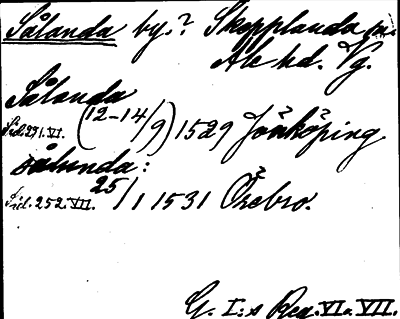 Sålanda by.? Skepplanda sn.
Ale hd. Vg.
Sålanda
Sid. 291. VI. (12-14/9) 1529 Jönköping
sålunda:
Sid. 252. VII. 25/1 1531 Örebro.
G. I:s Reg. VI o. VII.